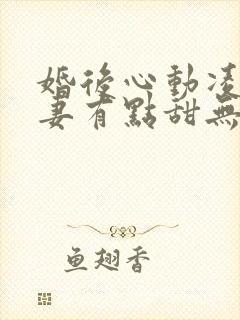 婚後心動凌
妻有點甜無
鱼翅香